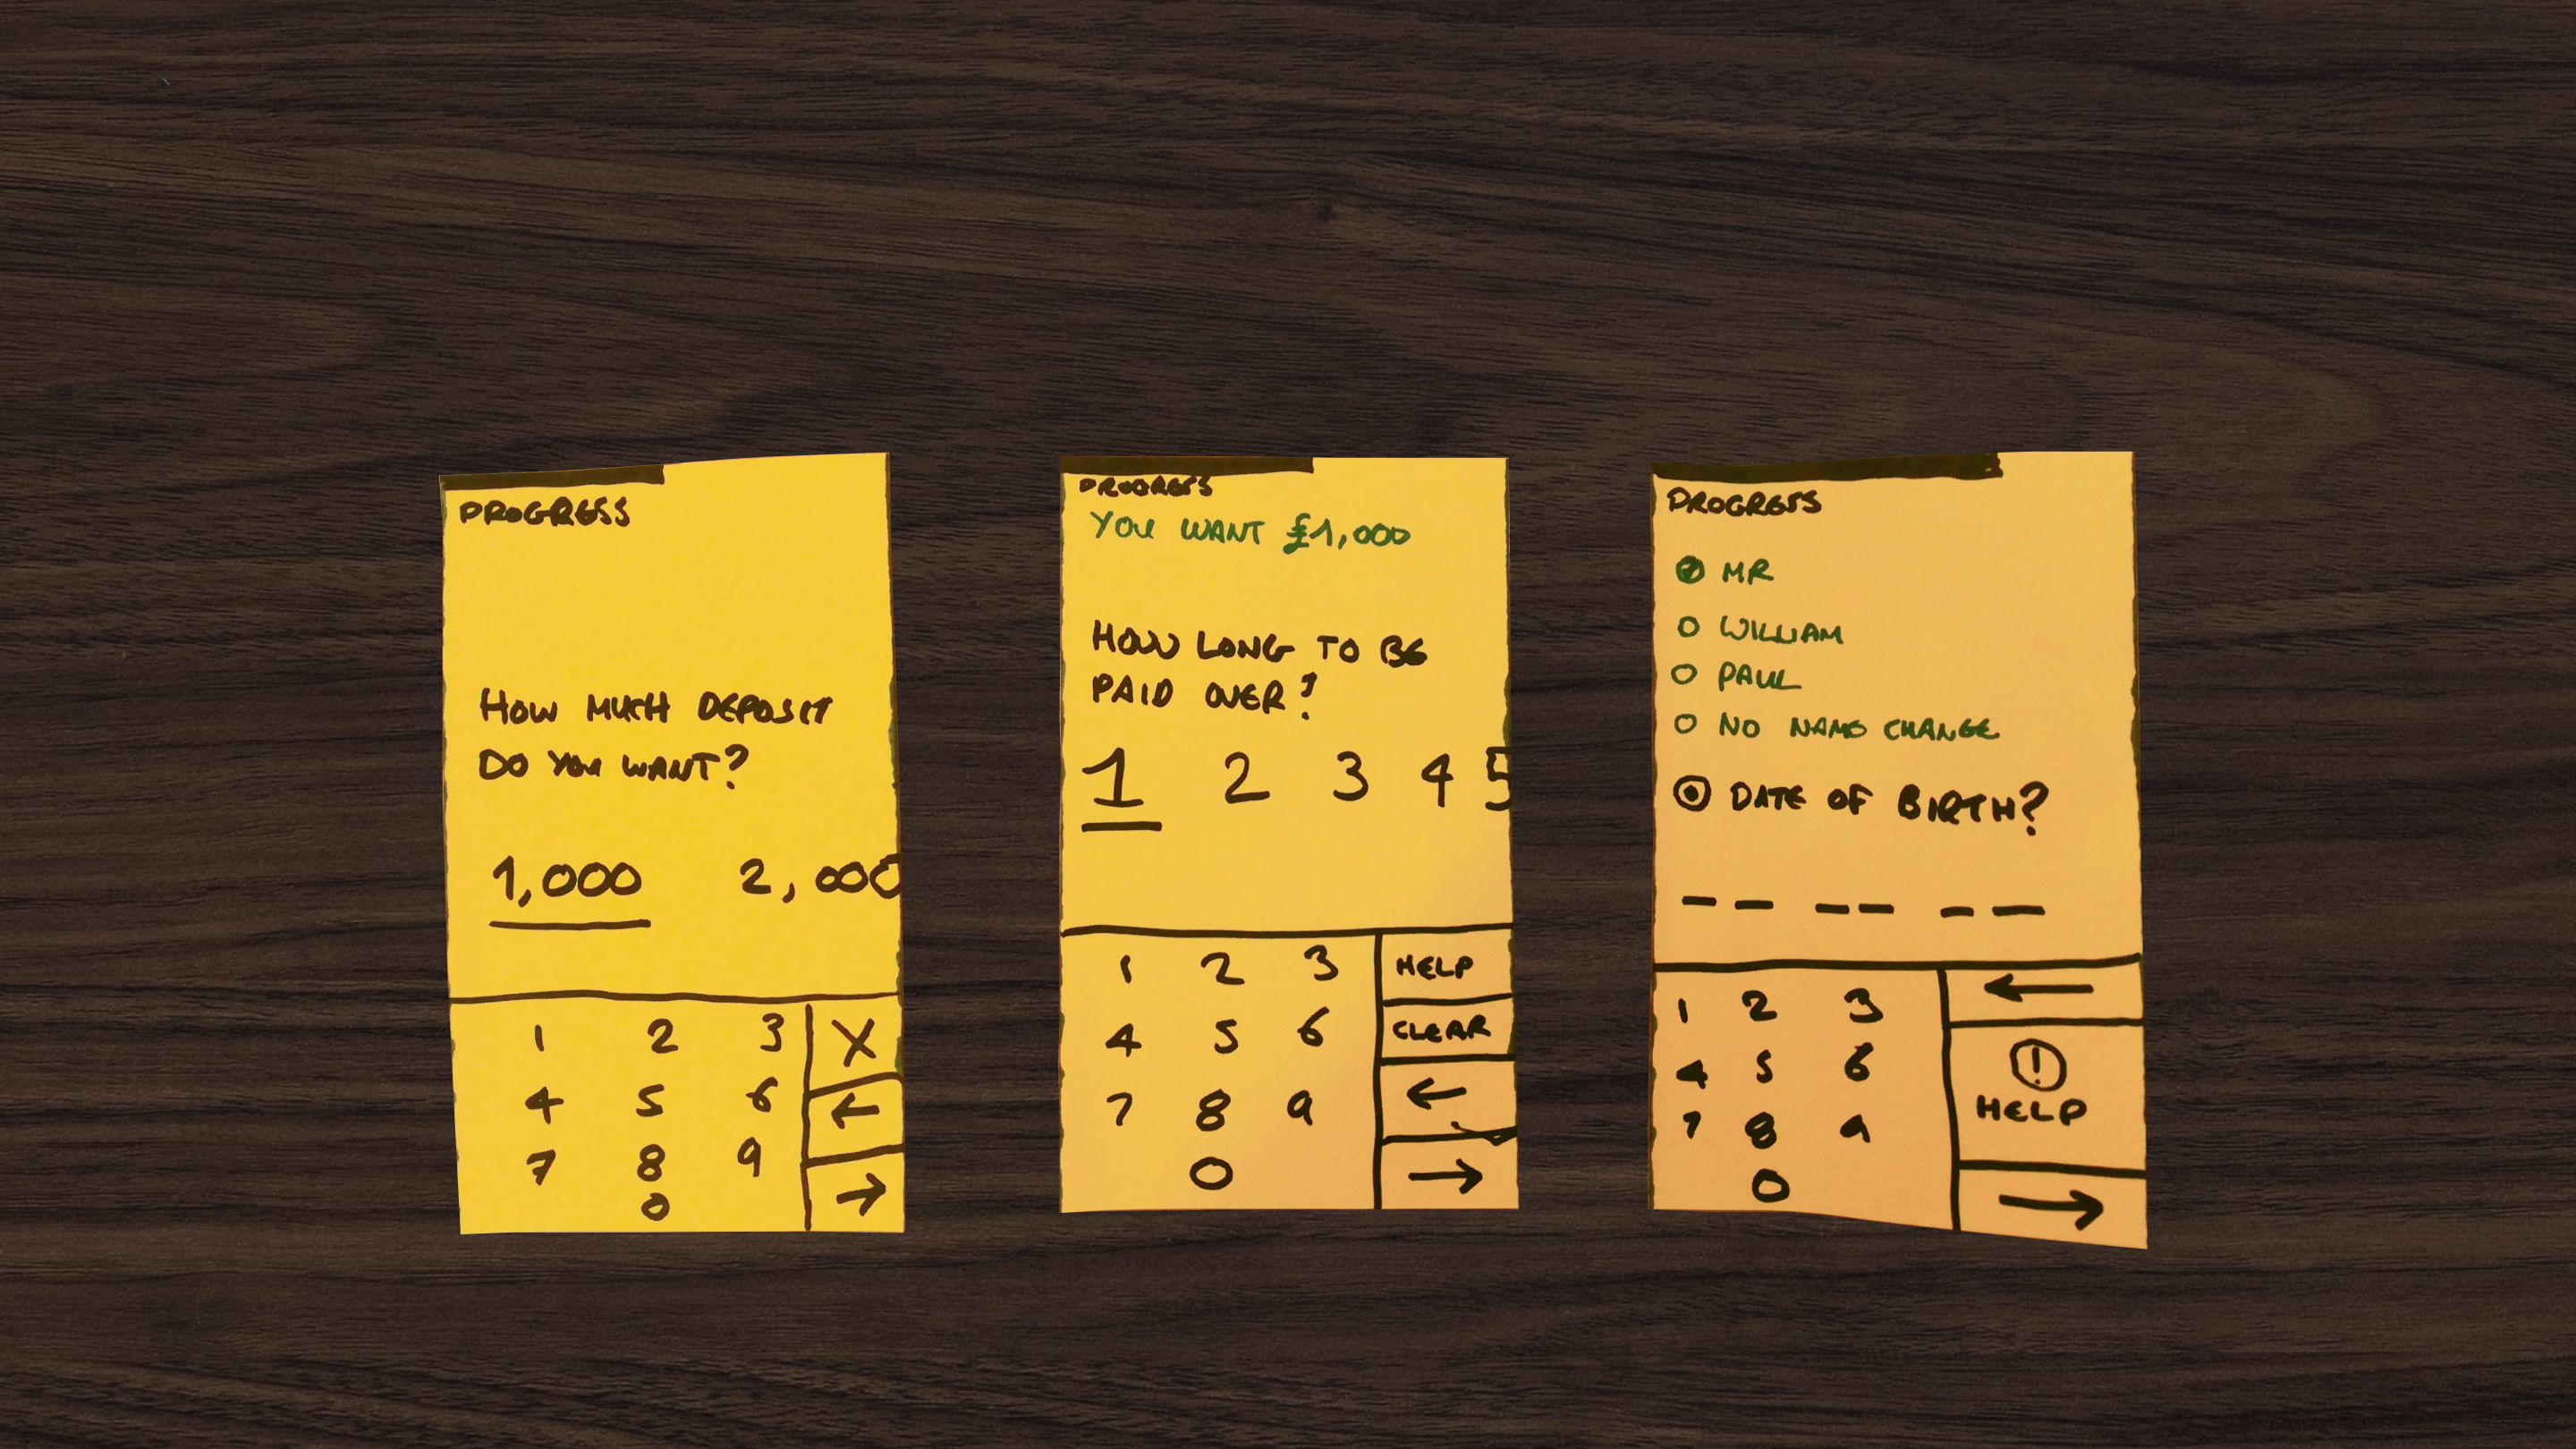 PROGRESS
HOW MUCH DEPOSIT
DO YOU WANT?
1,000 2,000
1 2 3 X
4 5 6 ←
7 8 9
0 →
PROGRESS
YOU WANT £1,000
HOW LONG TO BE
PAID OVER?
1 2 3 4 5
1 2 3 HELP
4 5 6 CLEAR
7 8 9 ←
0 →
PROGRESS
MR
WILLIAM
PAUL
NO NAME CHANGE
DATE OF BIRTH?
1 2 3 ←
4 5 6 !
7 8 9 HELP
0 →